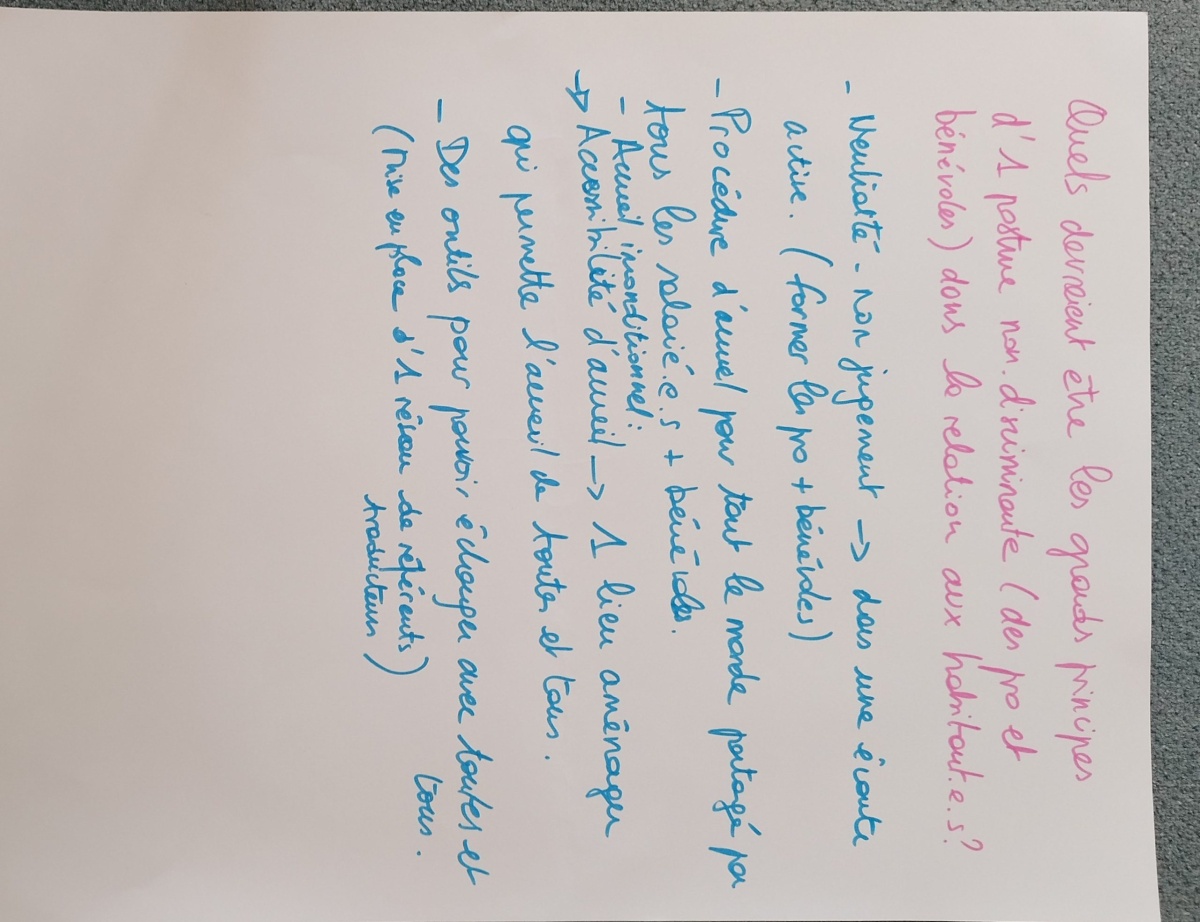 Quels devraient être les grands principes
d'1 posture non-discriminante (des pro et
bénévoles) dans la relation aux habitant.e.s?
- Neutralité - non jugement → dans une écoute
active. (former les pro + bénévoles)
- Procédure d'accueil pour tout le monde partagé par
tous les salarié.e.s + bénévoles.
- Accueil inconditionnel:
→ Accessibilité d'accueil → 1 lieu aménager
qui permette l'accueil de toutes et tous.
- Des outils pour pouvoir échanger avec toutes et
tous.
(mise en place d'1 réseau de référents
traducteurs)